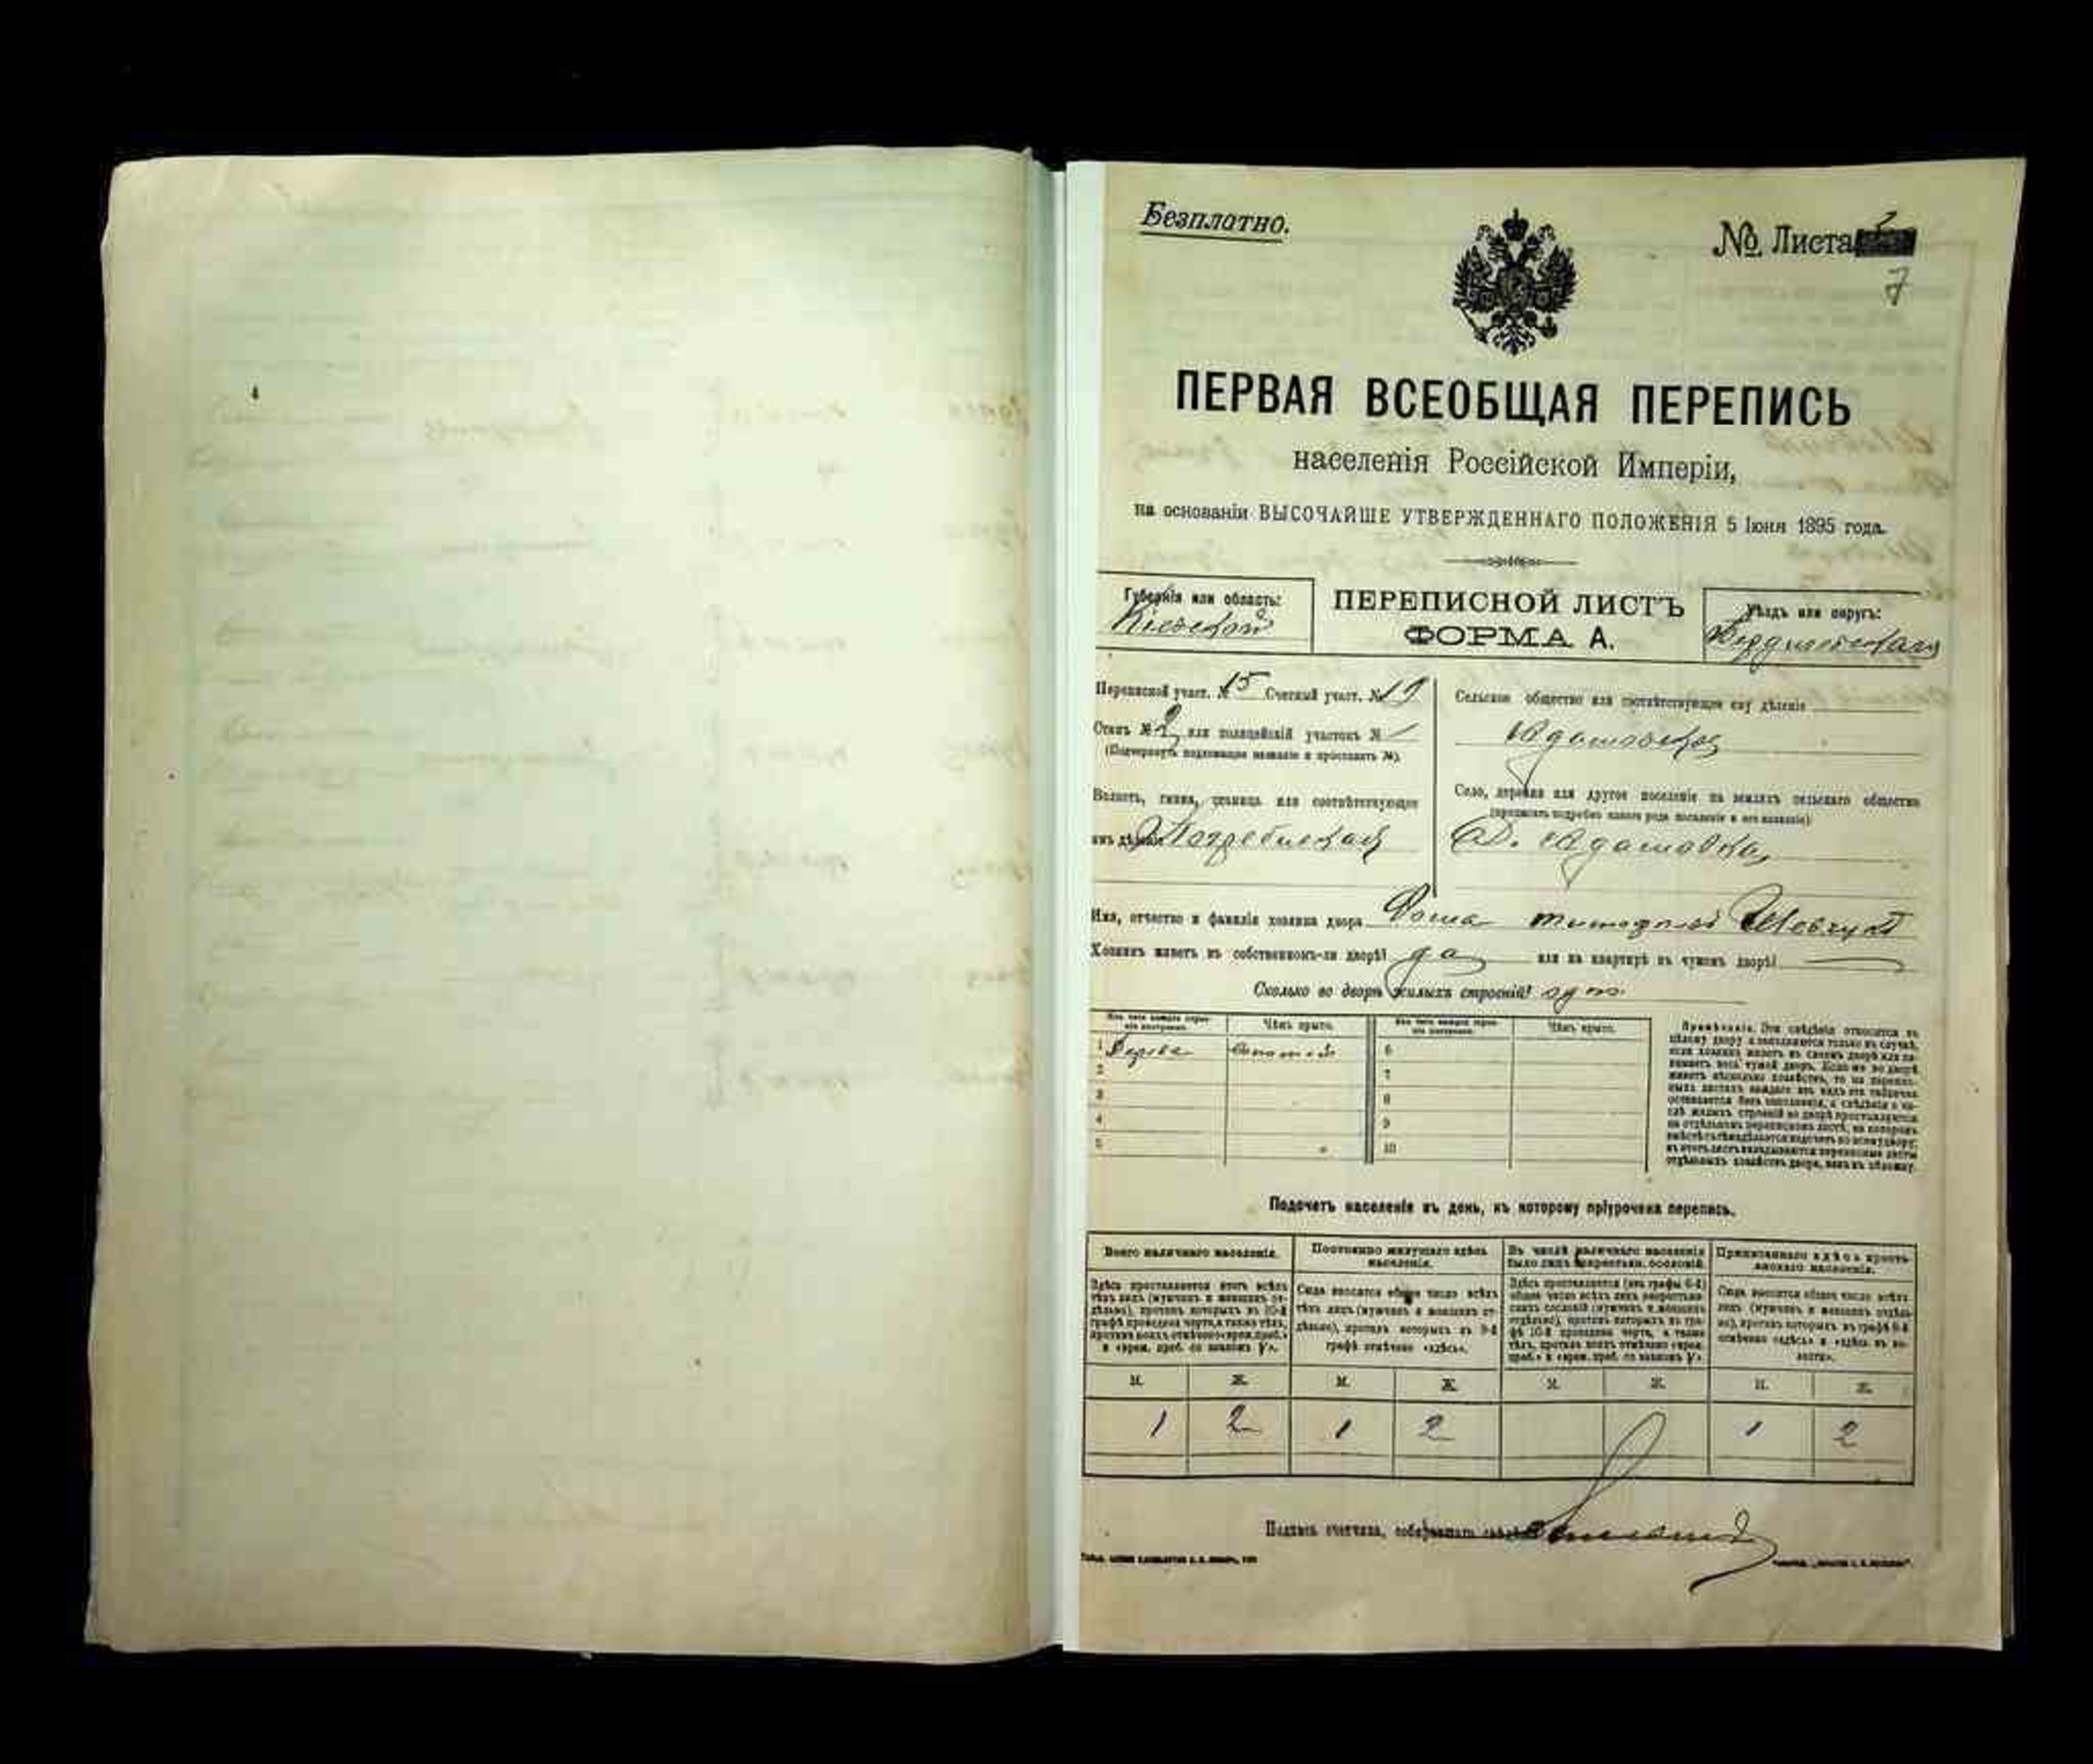 Безплатно.
№ Листа
7
ПЕРВАЯ ВСЕОБЩАЯ ПЕРЕПИСЬ
населенія Россійской Имперіи,
на основаніи ВЫСОЧАЙШЕ УТВЕРЖДЕННАГО ПОЛОЖЕНІЯ 5 Іюня 1895 года.
Губернія или область:
Кіевской
ПЕРЕПИСНОЙ ЛИСТЪ
ФОРМА А.
Уѣздъ или округъ:
Переписной участ. № 15 Счетный участ. № 19
Станъ № 2 или полицейскій участокъ №
(Подчеркнуть подлежащее названіе и проставить №).
Волость, гмина, станица или соотвѣтствующее
имъ дѣленіе Погребиская
Сельское общество или соотвѣтствующее ему дѣленіе
Адамовское
Село, деревня или другое поселеніе на земляхъ сельскаго общества
(прописать подробно какого рода поселеніе и его названіе):
Д. Адамовка
Имя, отчество и фамилія хозяина двора Шевчукъ
Хозяинъ живетъ въ собственномъ-ли дворѣ? да или на квартирѣ въ чужомъ дворѣ?
Сколько во дворѣ жилыхъ строеній? одно
Изъ чего каждое строеніе построено. Чѣмъ крыто. Изъ чего каждое строеніе построено. Чѣмъ крыто.
1 Дерева Соломой 6
2 7
3 8
4 9
5 10
Примѣчаніе. Эти свѣдѣнія относятся къ
цѣлому двору и заполняются только въ случаѣ,
если хозяинъ живетъ въ своемъ дворѣ или за-
нимаетъ весь чужой дворъ. Если же во дворѣ
живетъ нѣсколько хозяйствъ, то на перепис-
ныхъ листахъ каждаго изъ нихъ эта табличка
оставляется безъ заполненія, а свѣдѣнія о чи-
слѣ жилыхъ строеній во дворѣ проставляются
на отдѣльномъ переписномъ листѣ, на которомъ
Подсчетъ населенія въ день, къ которому пріурочена перепись.
Всего наличнаго населенія.
Здѣсь проставляется итогъ всѣхъ
тѣхъ лицъ (мужчинъ и женщинъ от-
дѣльно), противъ которыхъ въ 10-й
графѣ проведена черта, а также тѣхъ,
противъ коихъ отмѣчено «врем. преб.»
и «врем. преб. со знакомъ V».
Постоянно живущаго здѣсь
населенія.
Сюда вносится общее число всѣхъ
тѣхъ лицъ (мужчинъ и женщинъ от-
дѣльно), противъ которыхъ въ 9-й
графѣ отмѣчено «здѣсь».
Въ числѣ наличнаго населенія
было лицъ некрестьян. сословій.
Здѣсь проставляется (изъ графы 6-й)
общее число всѣхъ лицъ некрестьян-
скихъ сословій (мужчинъ и женщинъ
отдѣльно), противъ которыхъ въ гра-
фѣ 10-й проведена черта, а также
тѣхъ, противъ коихъ отмѣчено «врем.
преб.» и «врем. преб. со знакомъ V».
Приписаннаго здѣсь кресть-
янскаго населенія.
Сюда вносится общее число всѣхъ
лицъ (мужчинъ и женщинъ отдѣль-
но), противъ которыхъ въ графѣ 8-й
отмѣчено «здѣсь» и «здѣсь въ во-
лости».
М. Ж. М. Ж. М. Ж. М. Ж.
1 2 1 2 1 2
Подпись счетчика, собиравшаго свѣдѣнія